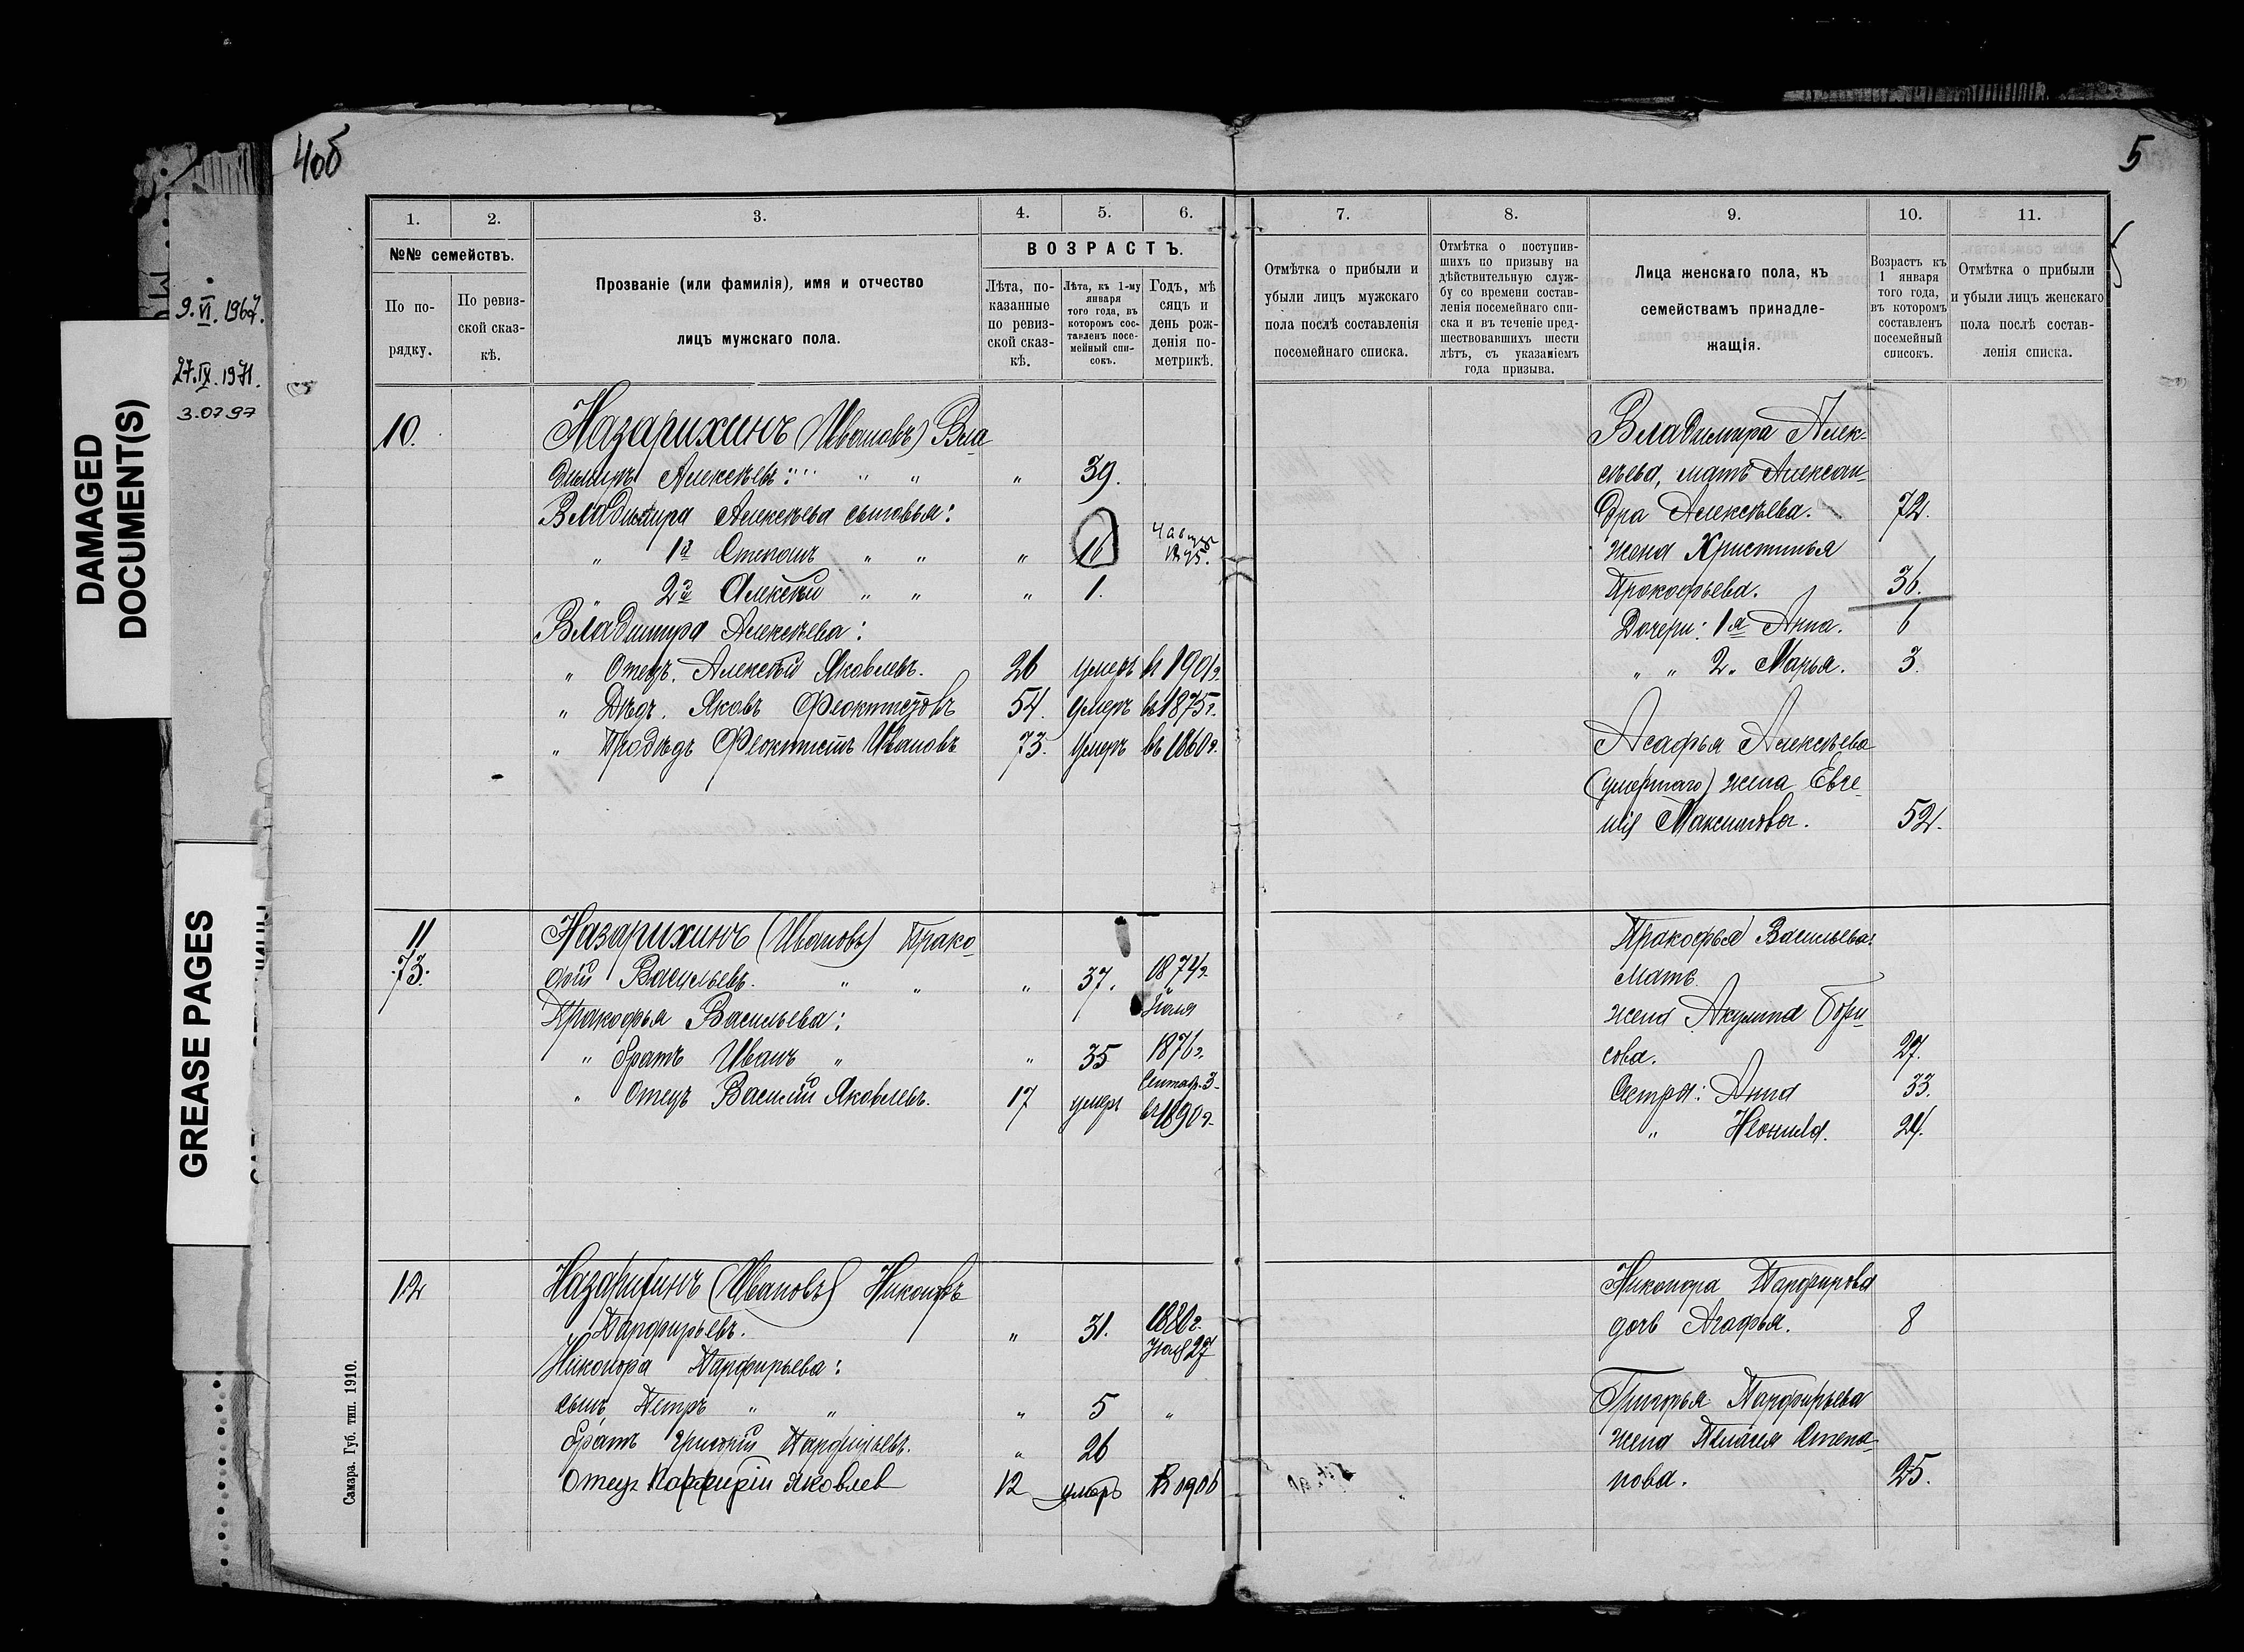 4об
5
DAMAGED
DOCUMENT(S)
9.VI.1967.
27.IX.1971.
3.07.97
GREASE PAGES
1.
2.
3.
4.
5.
6.
№№ семействъ.
По по-
рядку.
По ревиз-
ской сказ-
кѣ.
Прозваніе (или фамилія), имя и отчество
лицъ мужскаго пола.
ВОЗРАСТЪ.
Лѣта, по-
казанные
по ревиз-
ской сказ-
кѣ.
Лѣта, къ 1-му
января
того года, въ
которомъ сос-
тавленъ посе-
мейный спи-
сокъ.
Годъ, мѣ
сяцъ и
день рож-
денія по-
метрикѣ.
7.
8.
9.
10.
11.
Отмѣтка о прибыли и
убыли лицъ мужскаго
пола послѣ составленія
посемейнаго списка.
Отмѣтка о поступив-
шихъ по призыву на
дѣйствительную служ-
бу со времени состав-
ленія посемейнаго спи-
ска и въ теченіе пред-
шествовавшихъ шести
лѣтъ, съ указаніемъ
года призыва.
Лица женскаго пола, къ
семействамъ принадле-
жащія.
Возрастъ къ
1 января
того года,
въ которомъ
составленъ
посемейный
списокъ.
Отмѣтка о прибыли
и убыли лицъ женскаго
пола послѣ состав-
ленія списка.
10. Назарихинъ (Ивановъ) Вла-
димиръ Алексѣевъ: " " " 39.
Владимира Алексѣева сыновья:
" 1й Степанъ " " " 16
" 2й Алексѣй " " " 1.
Владимира Алексѣева:
" Отецъ. Алексѣй Яковлевъ. 26 умеръ въ 1901г.
" Дѣдъ. Яковъ Феоктистовъ 54. умеръ въ 1875г.
" Прадѣдъ Феоктистъ Ивановъ 73. умеръ въ 1860г.
Владимира Алек-
сѣева, мать Алексан-
дра Алексѣева. 72.
жена Христинья
Прокофьева. 36.
Дочери: 1я Анна. 6
" " 2. Марья. 3.
Асафья Алексѣева
(умершаго) жена Евге-
нія Максимова. 52.
11
73.
Назарихинъ (Ивановъ) Прако-
фій Васильевъ. " " " 37. 1874г.
Іюля
Пракофья Васильева:
" братъ Иванъ " " 35 1876г.
Сентяб. 3
" Отецъ Василій Яковлевъ. 17 умеръ въ 1890г.
Пракофья Васильева:
Мать
жена Акулина Бори-
сова. 27.
Сестры: Анна 33.
" Неонила. 24.
12 Назарихинъ (Ивановъ) Никоноръ
Парфирьевъ. " 31. 1880г.
27
Никонора Парфирьева:
сынъ Петръ " " " 5 "
братъ Григорій Парфирьевъ. " 26
отецъ Парфирій Яковлев 12 умеръ в 1906
Никонора Парфирова
дочь Агафья. 8
Григорья Парфирьева
жена Пелагея Степа-
нова. 25.
Самара. Губ. тип. 1910.